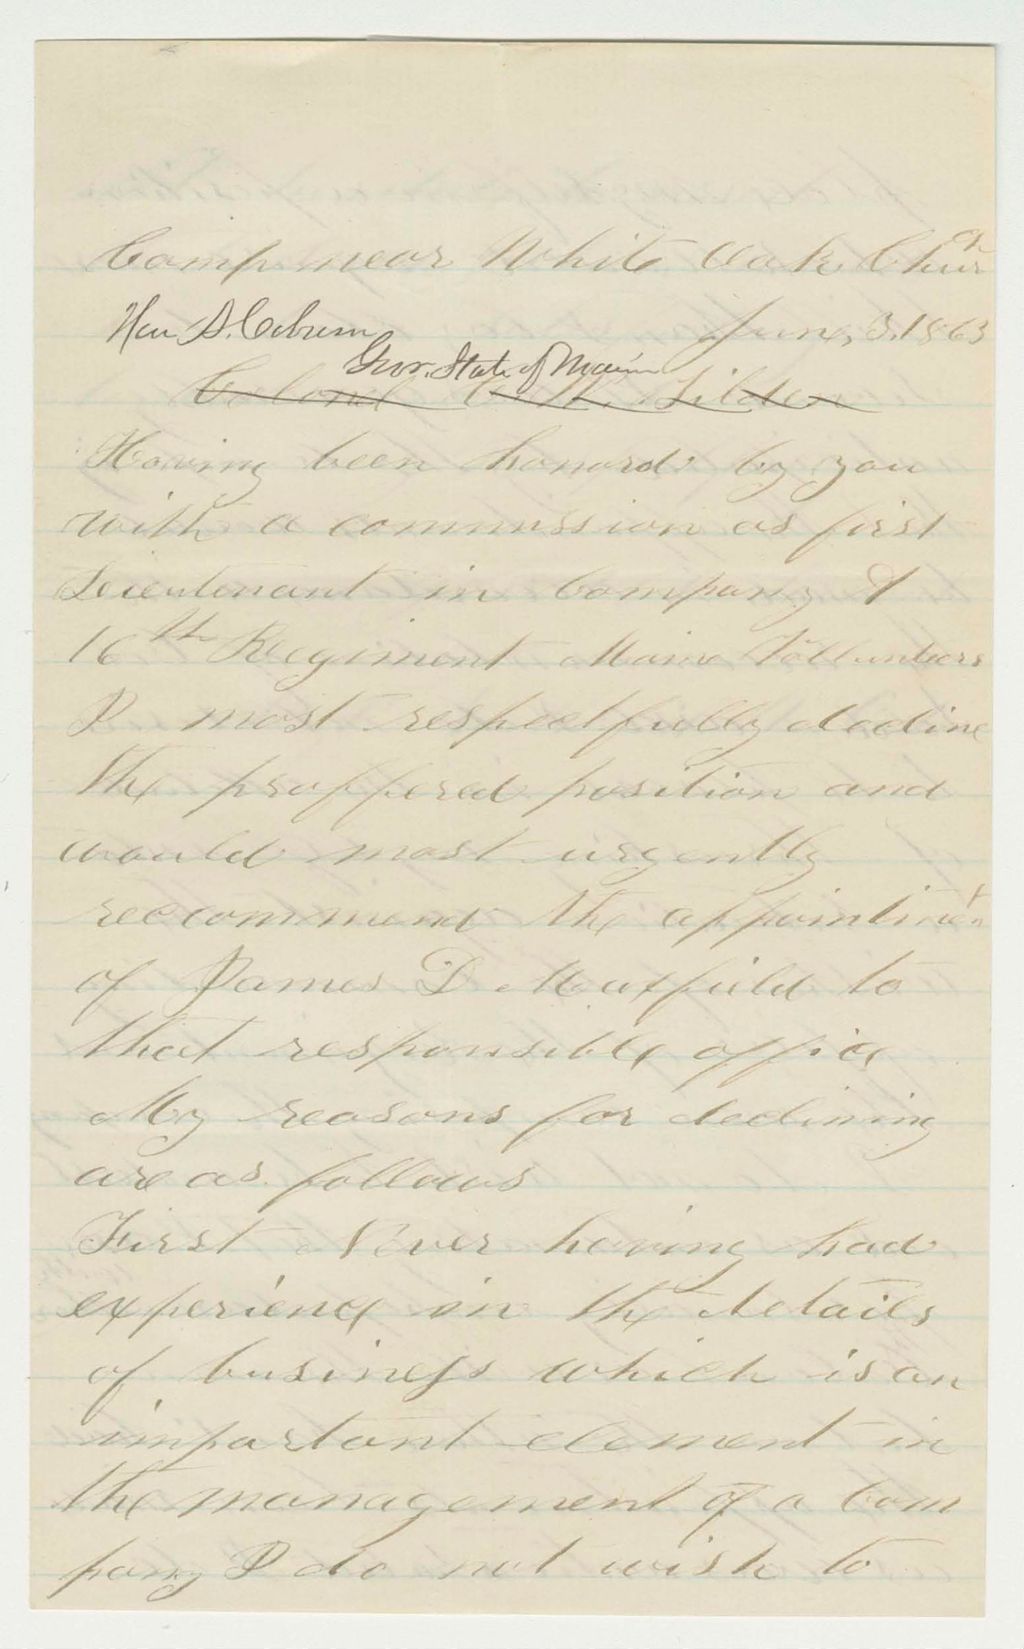 Camp near White Oak Church
June, 3, 1863
Hon A. Coburn
Gov. State of Maine
Colonel C. W. Tilden
Having been honord by you
with a commission as first
Lieutenant in Company I
16th Regiment Maine Vollunteers
I most respectfully decline
the proffered position and
would most urgently
reccommend the appointment
of James D Maxfield to
that responsible office
My reasons for declining
are as follows
First Never having had
experience in the details
of business which is an
important element in
the management of a Com
pany I do not wish to